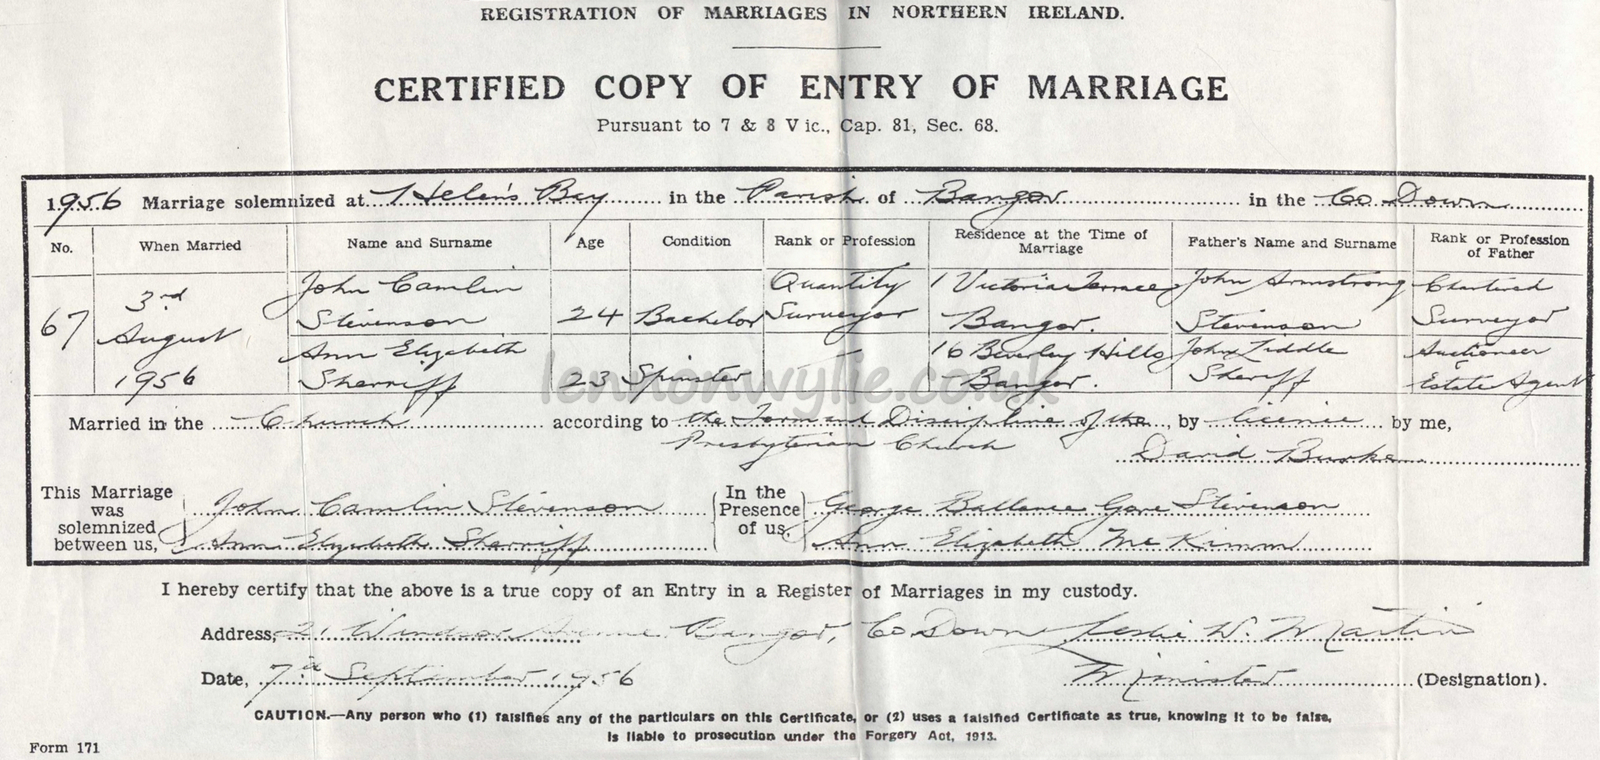 REGISTRATION OF MARRIAGES IN NORTHERN IRELAND.
CERTIFIED COPY OF ENTRY OF MARRIAGE
Pursuant to 7 & 8 Vic., Cap. 81, Sec. 68.
1956 Marriage solemnized at Helen's Bay in the Parish of Bangor in the Co Down
No. When Married Name and Surname Age Condition Rank or Profession Residence at the Time of Marriage Father's Name and Surname Rank or Profession of Father
67 3rd August 1956
John Camlin Stevenson 24 Bachelor Quantity Surveyor 1 Victoria Terrace Bangor. John Armstrong Stevenson Chartered Surveyor
Ann Elizabeth Sherriff 23 Spinster 16 Beverley Hills Bangor. John Liddle Sheriff Auctioneer & Estate Agent
lennonwylie.co.uk
Married in the Church according to the Form and Discipline of the, by licence by me,
Presbyterian Church
David Burke
This Marriage was solemnized between us, John Camlin Stevenson
Ann Elizabeth Sherriff
In the Presence of us. George Ballance Gore Stevenson
Ann Elizabeth McKimm
I hereby certify that the above is a true copy of an Entry in a Register of Marriages in my custody.
Address, 21 Windsor Avenue Bangor, Co Down Leslie W. Martin
Date, 7th September 1956 Minister (Designation).
CAUTION.—Any person who (1) falsifies any of the particulars on this Certificate, or (2) uses a falsified Certificate as true, knowing it to be false,
is liable to prosecution under the Forgery Act, 1913.
Form 171